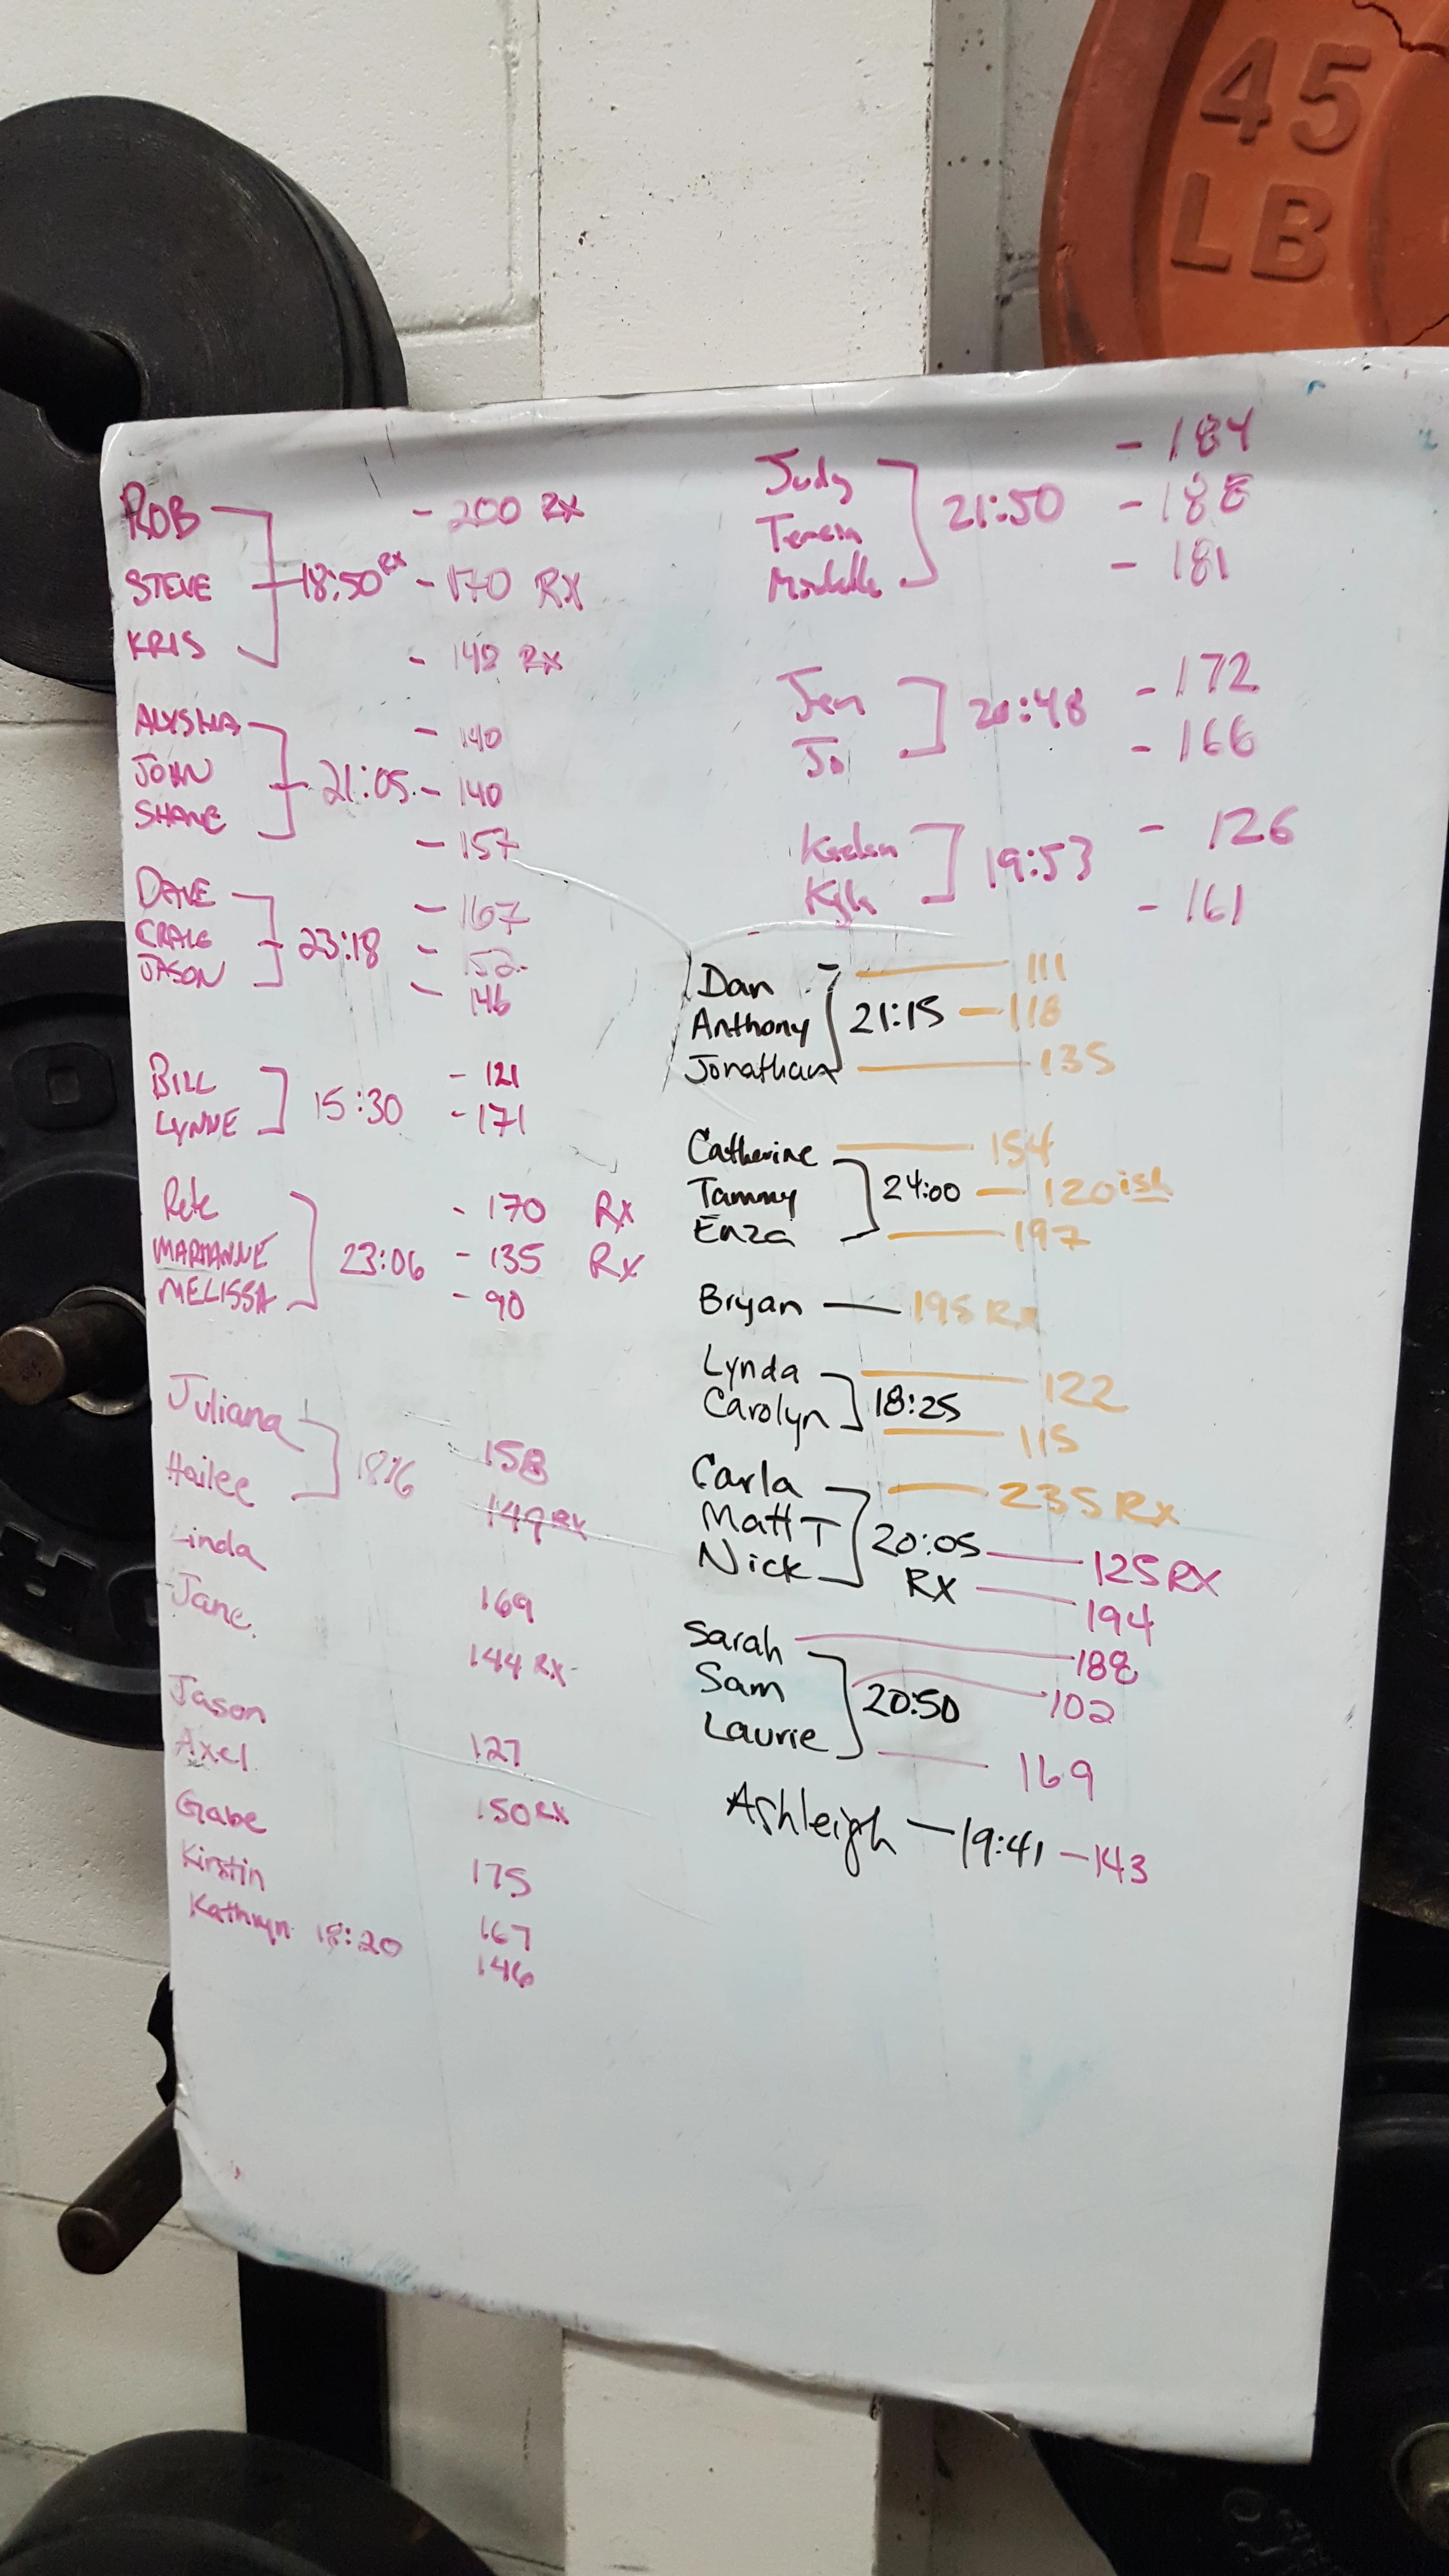 45
LB
ROB - 200 RX
STEVE 18:50 RX - 170 RX
KRIS - 148 RX
ALYSHA - 140
JOHN 21:05 - 140
SHANE - 157
DAVE - 167
CRAIG 23:18 - 152
JASON - 146
BILL - 121
LYNNE 15:30 - 171
Pete - 170 RX
MARIANNE 23:06 - 135 RX
MELISSA - 90
Juliana 158
Hailee 149 RX
Linda
Jane 169
144 RX
Jason
Axel 127
Gabe 150 RX
Kirstin 175
Kathryn 18:20 167
146
Judy - 184
21:50 - 188
- 181
Jen - 172
Jo 20:48 - 166
- 126
Kyle 19:53 - 161
Dan 111
Anthony 21:15 - 118
Jonathan 135
Catherine 154
Tammy 24:00 - 120ish
Enza 197
Bryan - 195 Rx
Lynda 122
Carolyn 18:25 115
Carla 235 Rx
Matt T 20:05 125 RX
Nick RX 194
Sarah 188
Sam 20:50 102
Laurie 169
Ashleigh - 19:41 - 143